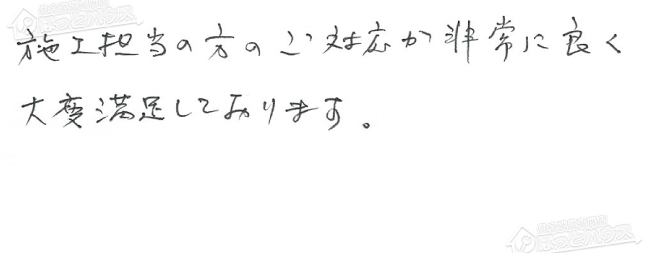 施工担当の方のご対応が非常に良く
大変満足しております。